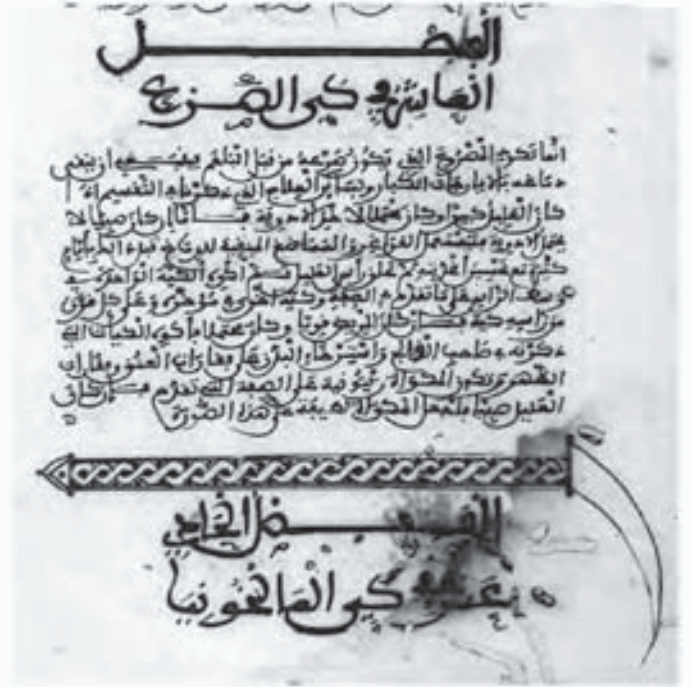 الفصل
العاشر في كي الصرع
انما تكوى المصروع الذي يكون صرعه من قبل البلغم فينبغي ان ينقى
دماغه بالايارجات الكبار وبسائر العلاج الذي ذكرناه في التقسيم اذا
كان العليل كبيرا وكان محتملا لاخذ الادوية فاما ان كان صبيا لا
يحتمل الادوية فليستعمل الغراغر والمماضغ المنقية للدماغ قبل ذلك بايام
كثيرة مع تحسين اغذيته ثم تحلق راس العليل ثم اكوه الكية الواحدة في
وسط الراس على ما تقدم من الصفة وكية اخرى في موخره وعلى كل قرن
من راسه كية فان كان قويا وكان محتملا فاكوه الكيات التي
ذكرت في صاحب الفالج واسترخاء البدن على فقارات العنق وفقارات
الظهر وتكون المكواة زيتونية على الصفة التي تقدم فان كان
العليل صبيا فلتجعل المكواة لطيفة على هذه الصورة
الفصل الحادي
عشر في كي المالنخونيا